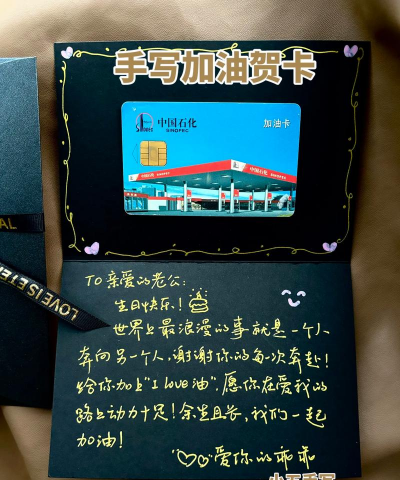 手写加油贺卡
中国石化
SINOPEC
加油卡
中国石化
LOVE IS ETE
AL
TO 亲爱的老公:
生日快乐!
世界上最浪漫的事就是一个人
奔向另一个人,谢谢你的每一次奔赴!
给你加上"I love油",愿你在爱我的
路上动力十足!余生且长,我们一起
加油!
爱你的乖乖